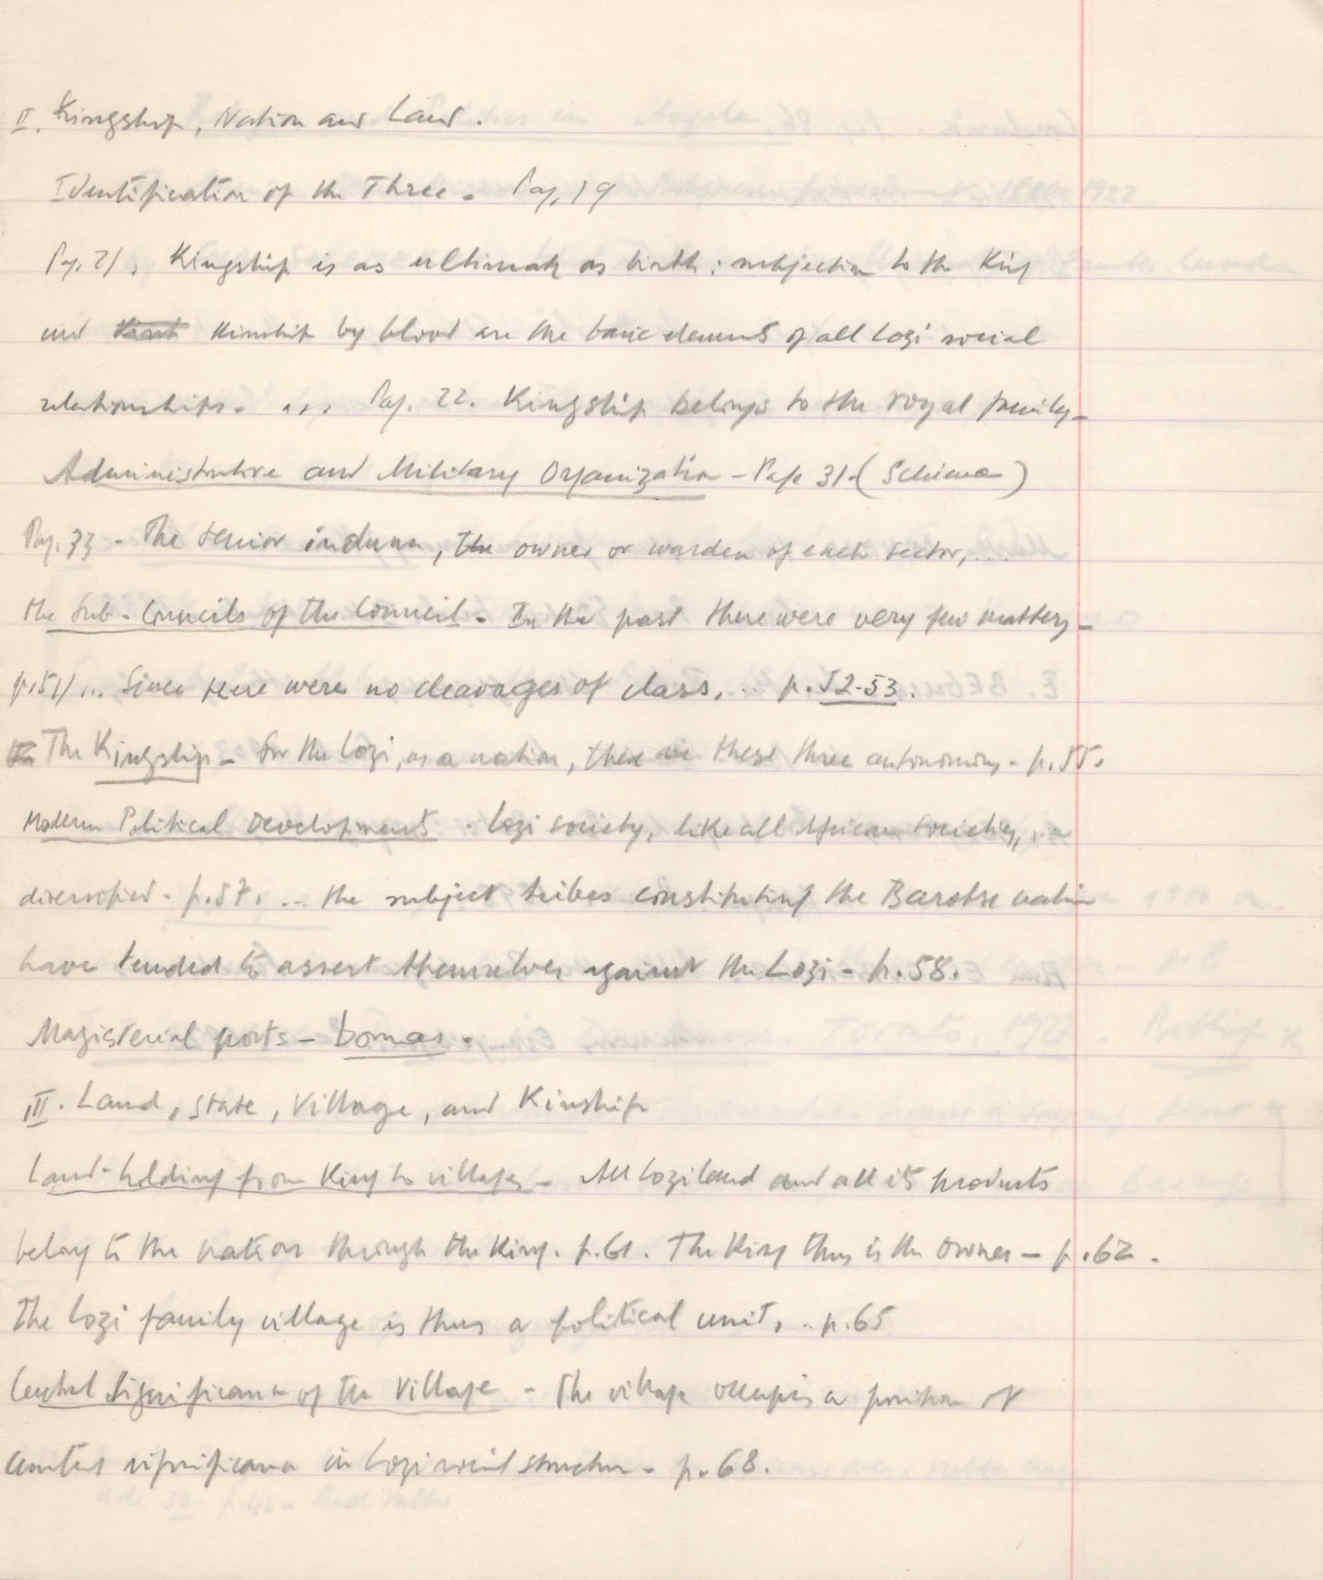 II. Kingship, Nation and Land.
Identification of the Three. Pag. 19
Pag. 21, Kingship is as ultimate as birth: subjection to the King
and kinship by blood are the basic elements of all Lozi social
relationships. ... Pag. 22. Kingship belongs to the royal family -
Administrative and Military Organization - Page 31. (Scheme)
Pag. 33 - The senior induna, the owner or warden of each sector, ...
the Sub-Councils of the Council - In the past there were very few matters -
p. 51/... Since there were no cleavages of class, ... p. 52-53.
The Kingship - For the Lozi, as a nation, there are these three autonomous - p. 55.
Modern Political Developments - Lozi society, like all African societies, ...
diversified - p. 57. ... the subject tribes constituting the Barotse nation
have tended to assert themselves against the Lozi - p. 58.
Magisterial posts - bomas.
III. Land, State, Village, and Kinship
Land-holding from King to villages - All Loziland and all its products
belong to the nation through the King. p. 61. The King thus is the owner - p. 62.
The Lozi family village is thus a political unit, .. p. 65
Central Significance of the Village - The village occupies a position of
central significance in Lozi social structure - p. 68.